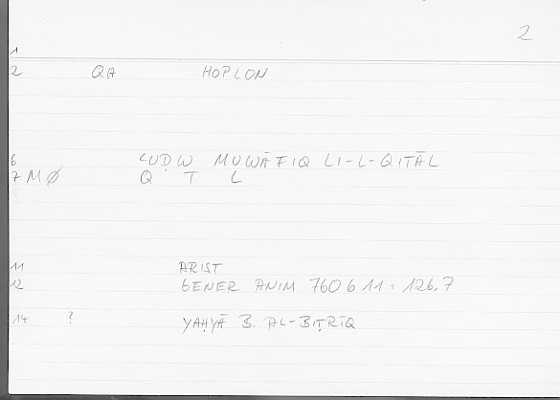 2
1
2 QA HOPLON
6 ʿUḌW MUWĀFIQ LI-L-QITĀL
7 M Ø Q T L
11 ARIST
12 GENER ANIM 760 b 11 : 126.7
14 ? YAḤYĀ B. AL-BIṬRĪQ